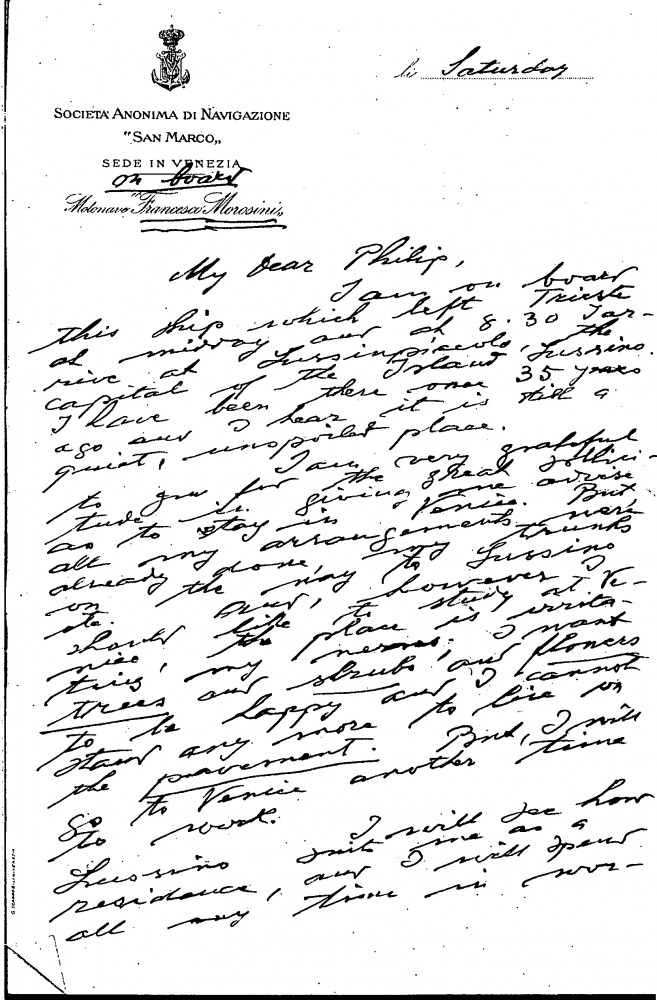 li Saturday
SOCIETÀ ANONIMA DI NAVIGAZIONE
"SAN MARCO„
SEDE IN VENEZIA
on board
Motonave "Francesco Morosini„
My Dear Philip,
I am on board
this ship which left Trieste
at midday and at 8.30 I ar-
rive at Lussinpiccolo, the
capital of the Island Lussino.
I have been there once 35 years
ago and I hear it is still a
quiet, unspoiled place.
I am very grateful
to you for the great sollici-
tude in giving me advise
as to stay in Venice. But
all my arrangements were
already done, my trunks
on the way to Lussino
etc. And, however I
should like to study at Ve-
nice, the place is irrita-
ting my nerves. I want
trees and shrubs and flowers
to be happy and I cannot
stand any more to live on
the pavement. But, I will
go to Venice another time
to work.
I will see how
Lussino suits me as a
residence, and I will spend
all my time in wor-